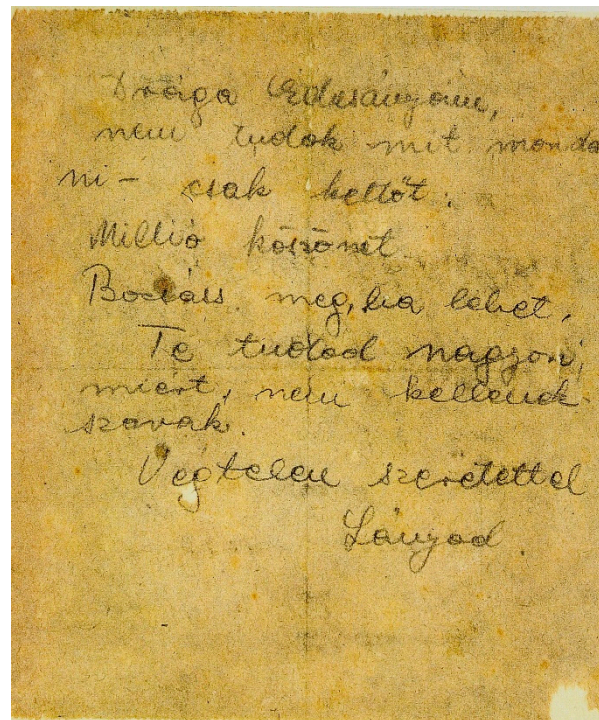 Drága Édesányám,
nem tudok mit monda
ni - csak kettőt:
Millió köszönet.
Bocsáss meg, ha lehet.
Te tudod nagyon,
miért, nem kellenek
szavak.
Végtelen szeretettel
Lányod.